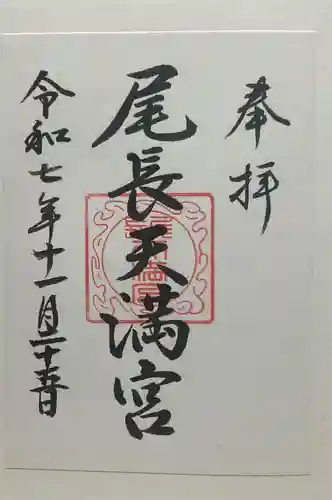 奉拝
尾長天満宮
令和七年十一月二十春日